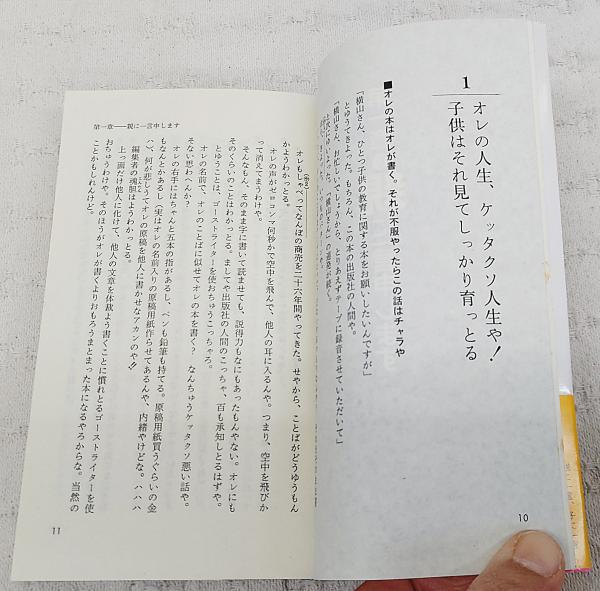 1
オレの人生、ケッタクソ人生や!
子供はそれ見てしっかり育っとる
■オレの本はオレが書く。それが不服やったらこの話はチャラや
「横山さん、ひとつ子供の教育に関する本をお願いしたいんですが」
とゆうてきよった。もちろん、この本の出版社の人間や。
「横山さん、お忙しいでしょうから、とりあえずテープに録音させていただいて」
10
第一章――親に一言申します
オレもしゃべってなんぼの商売を二十六年間やってきた。せやから、ことばがどうゆうもん
かようわかっとる。
オレの声がゼロコンマ何秒かで空中を飛んで、他人の耳に入るんや。つまり、空中を飛びか
って消えてまうわけや。
そんなもん、そのまま字に書いて読ませても、説得力もなにもあったもんやない。オレにも
そのくらいのことはわかっとる。ましてや出版社の人間のこっちゃ、百も承知しとるはずや。
とゆうことは、ゴーストライターを使おちゅうこっちゃろ。
オレの名前で、オレのことばに似せてオレの本を書く? なんちゅうケッタクソ悪い話や。
そない思わへんか?
オレの右手にはちゃんと五本の指があるし、ペンも鉛筆も持てる。原稿用紙買うぐらいの金
もなんとかあるし(実はオレの名前入りの原稿用紙作らせてあるんや、内緒やけどな。ハハハ
ハ)、何が悲しうてオレの原稿を他人に書かせなアカンのや!!
編集者の魂胆はようわかっとる。
上っ面だけ他人に化けて、他人の文章を体裁よう書くことに慣れとるゴーストライターを使
おちゅうわけや。そのほうがオレが書くよりおもろうまとまった本になるやろからな。当然の
ことかもしれんけど。
11